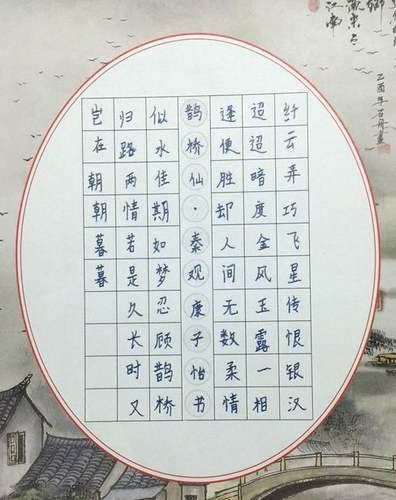 纤云弄巧飞星传恨银汉
超超暗度金风玉露一相
逢便胜却人间无数柔情
鹊桥仙·秦观康子怡书
似水佳期如梦忍顾鹊桥
归路两情若是久长时又
岂在朝朝暮暮
江南
乙酉年